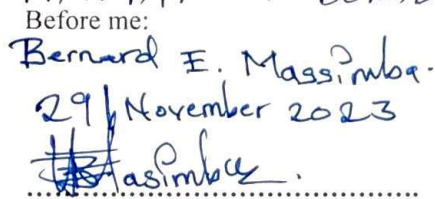 Before me:
Bernard E. Massimba.
29 November 2023